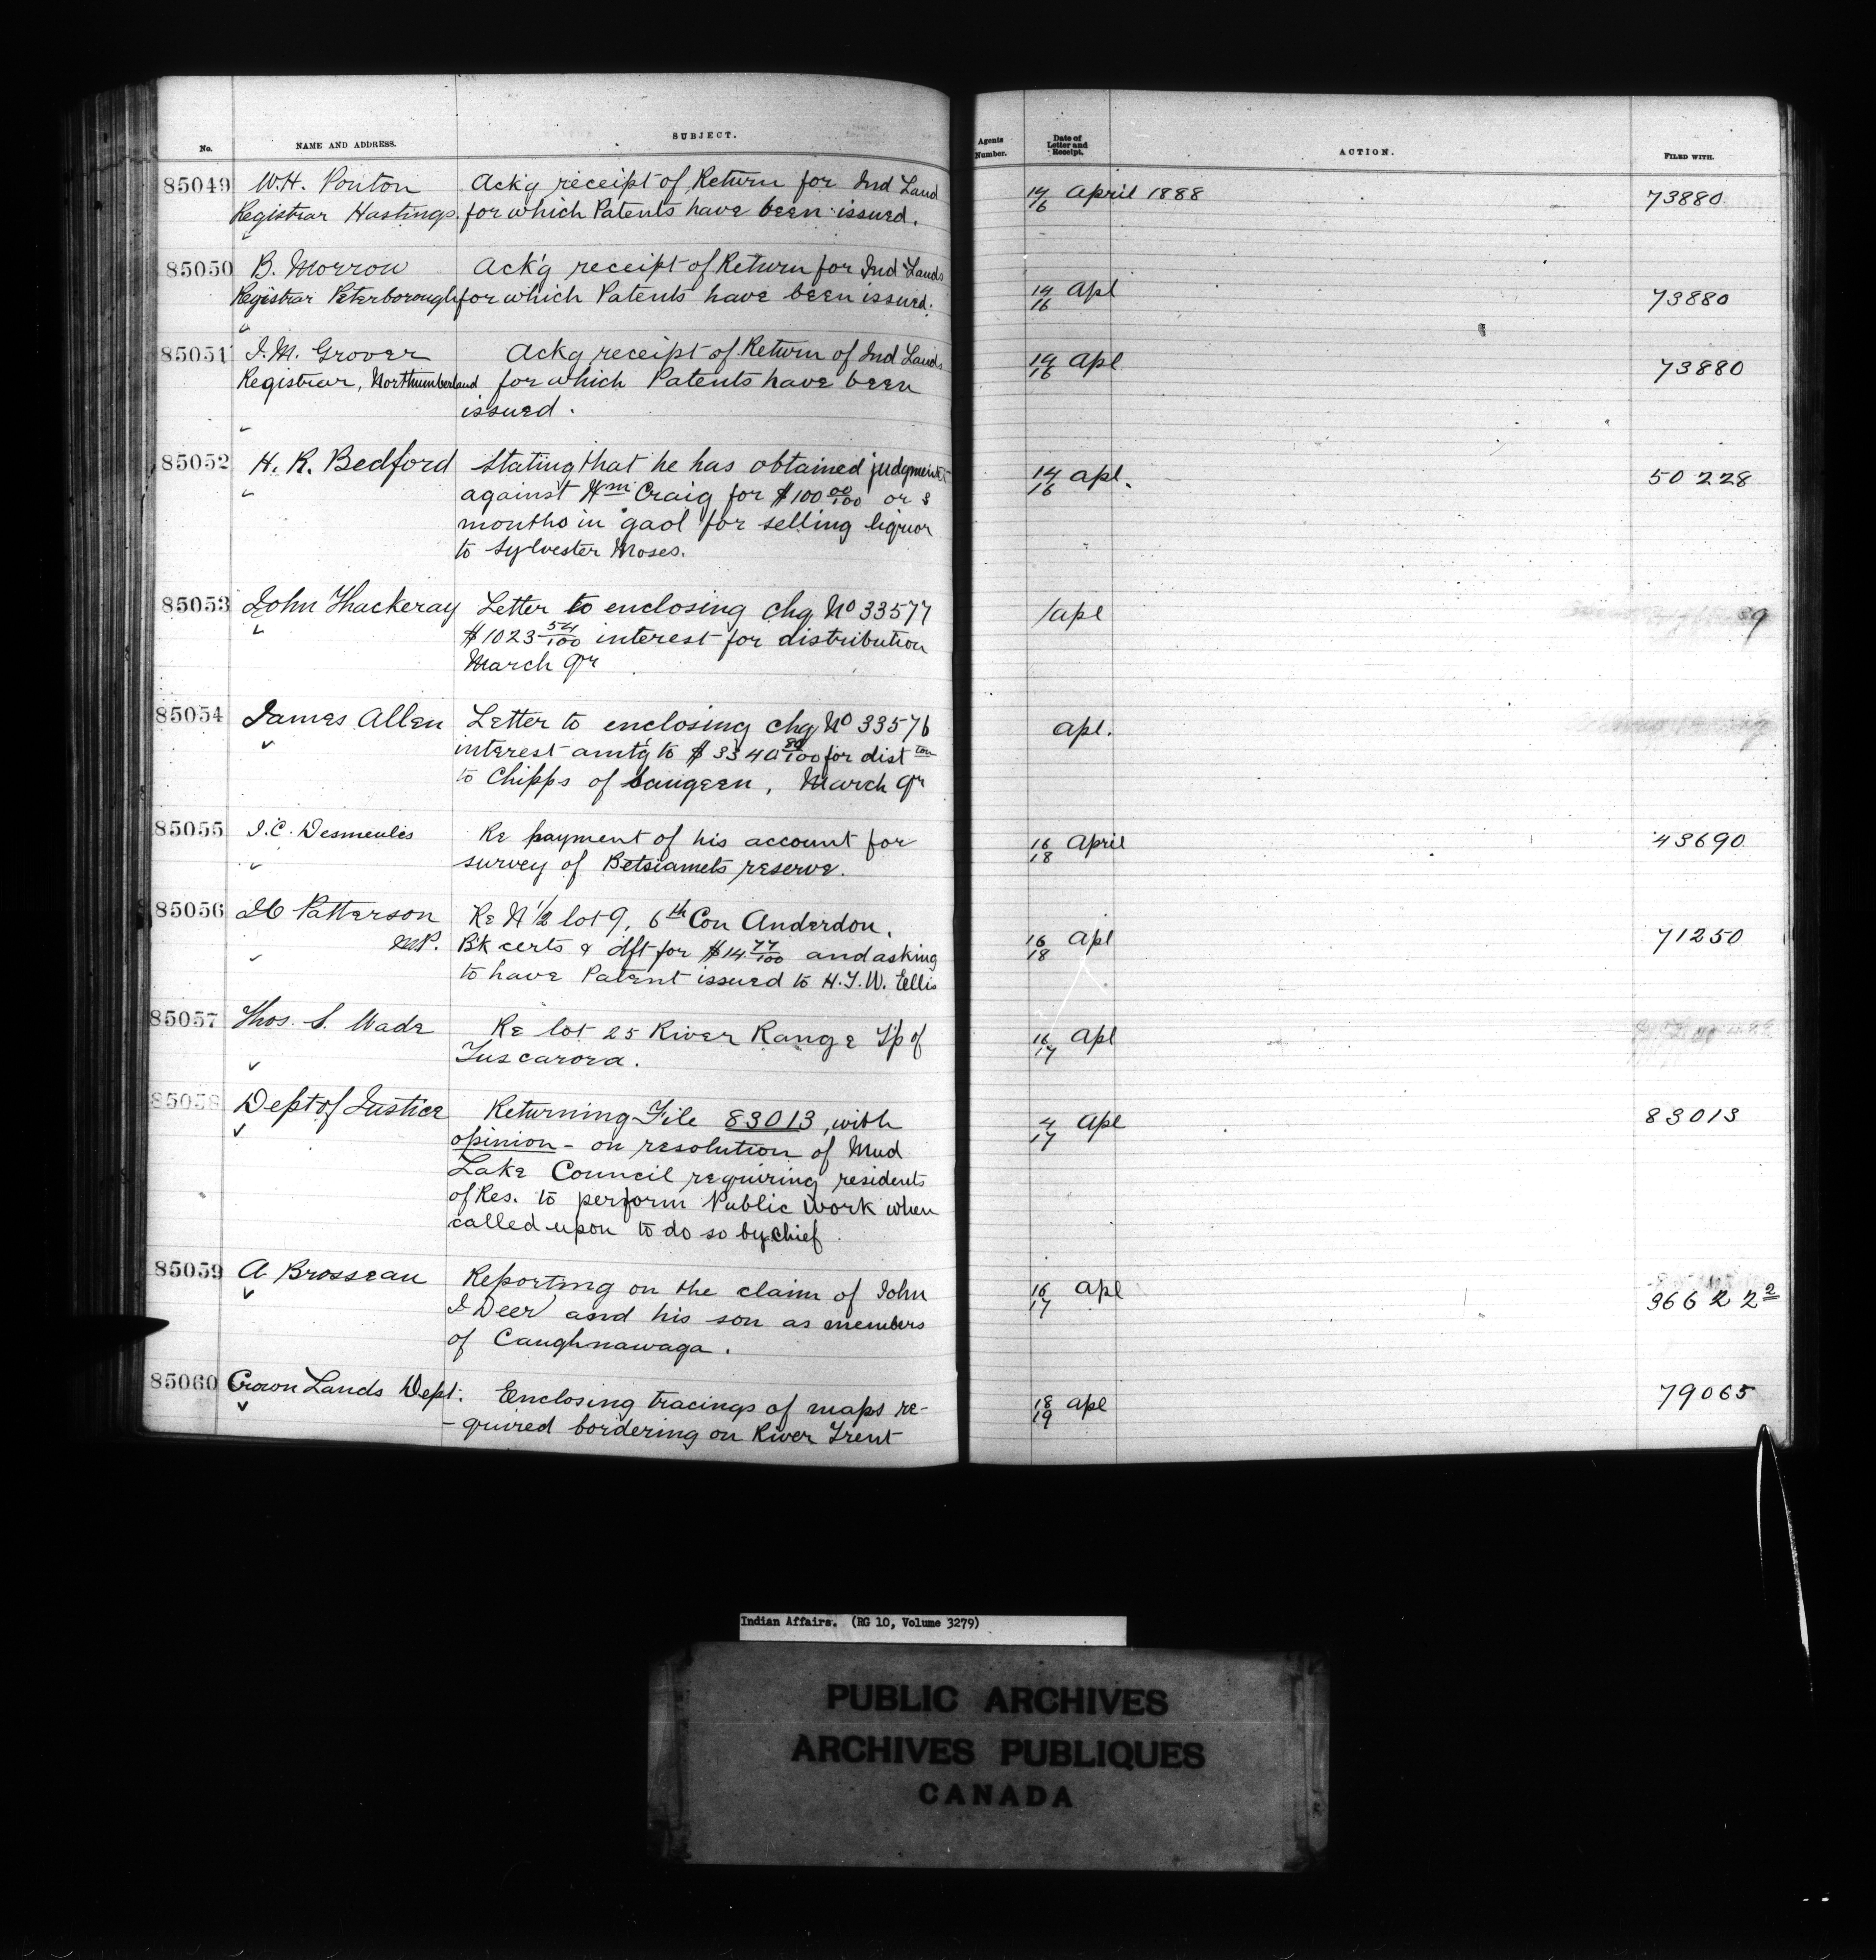 No. NAME AND ADDRESS. SUBJECT.
85049 W.H. Ponton Ack'g receipt of Return for Ind Land
Registrar Hastings. for which Patents have been issued.
85050 B. Morrow Ack'g receipt of Return for Ind Lands
Registrar Peterborough for which Patents have been issued.
85051 J.M. Grover Ackg receipt of Return of Ind Lands
Registrar, Northumberland for which Patents have been
issued.
85052 H. R. Bedford Stating that he has obtained judgment
against Wm Craig for $100 00/100 or 3
months in gaol for selling liquor
to Sylvester Moses.
85053 John Thackeray Letter to enclosing chq No 33577
$1023 54/100 interest for distribution
March Qr
85054 James Allen Letter to enclosing chq No 33576
interest amt'g to $3340 80/100 for dist tion
to Chipps of Saugeen, March Qr
85055 J.C. Desmeules Re payment of his account for
survey of Betsiamets reserve.
85056 J C Patterson Re N 1/2 lot 9, 6th Con Anderdon.
M.P. B'k certs & dft for $14 77/100 and asking
to have Patent issued to H.T.W. Ellis
85057 Thos. S. Wade Re lot 25 River Range T'p of
Tuscarora.
85058 Dept of Justice Returning File 83013, with
opinion - on resolution of Mud
Lake Council requiring residents
of Res. to perform Public Work when
called upon to do so by Chief
85059 A Brosseau Reporting on the claim of John
I Deer and his son as members
of Caughnawaga.
85060 Crown Lands Dept. Enclosing tracings of maps re-
-quired bordering on River Trent
Agents Number. Date of Letter and Receipt. ACTION. FILED WITH.
14/16 April 1888 73880
14/16 Apl 73880
14/16 Apl 73880
14/16 Apl. 50228
/Apl 9
Apl.
16/18 April 43690
16/18 Apl 71250
16/17 Apl
4/17 Apl 83013
16/17 Apl 36622 2
18/19 Apl 79065
Indian Affairs. (RG 10, Volume 3279)
PUBLIC ARCHIVES
ARCHIVES PUBLIQUES
CANADA